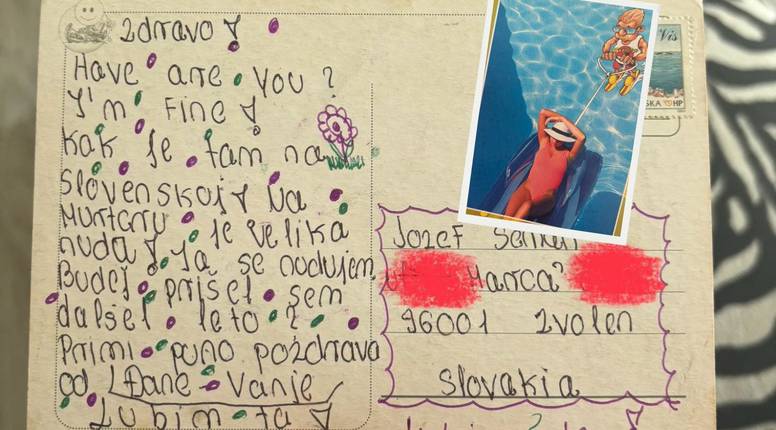 Zdravo!
Have are you?
I'm fine!
Kak je tam na
slovenskoj! Na
Murteru je velika
nuda! Ja se nudujem
Budeš prišel sem
dalšel leto?
Primi puno pozdrava
od Đane Vanje
Ľubim ťa!
Vis
SKA HP
Jozef
Marca
96001 Zvolen
Slovakia